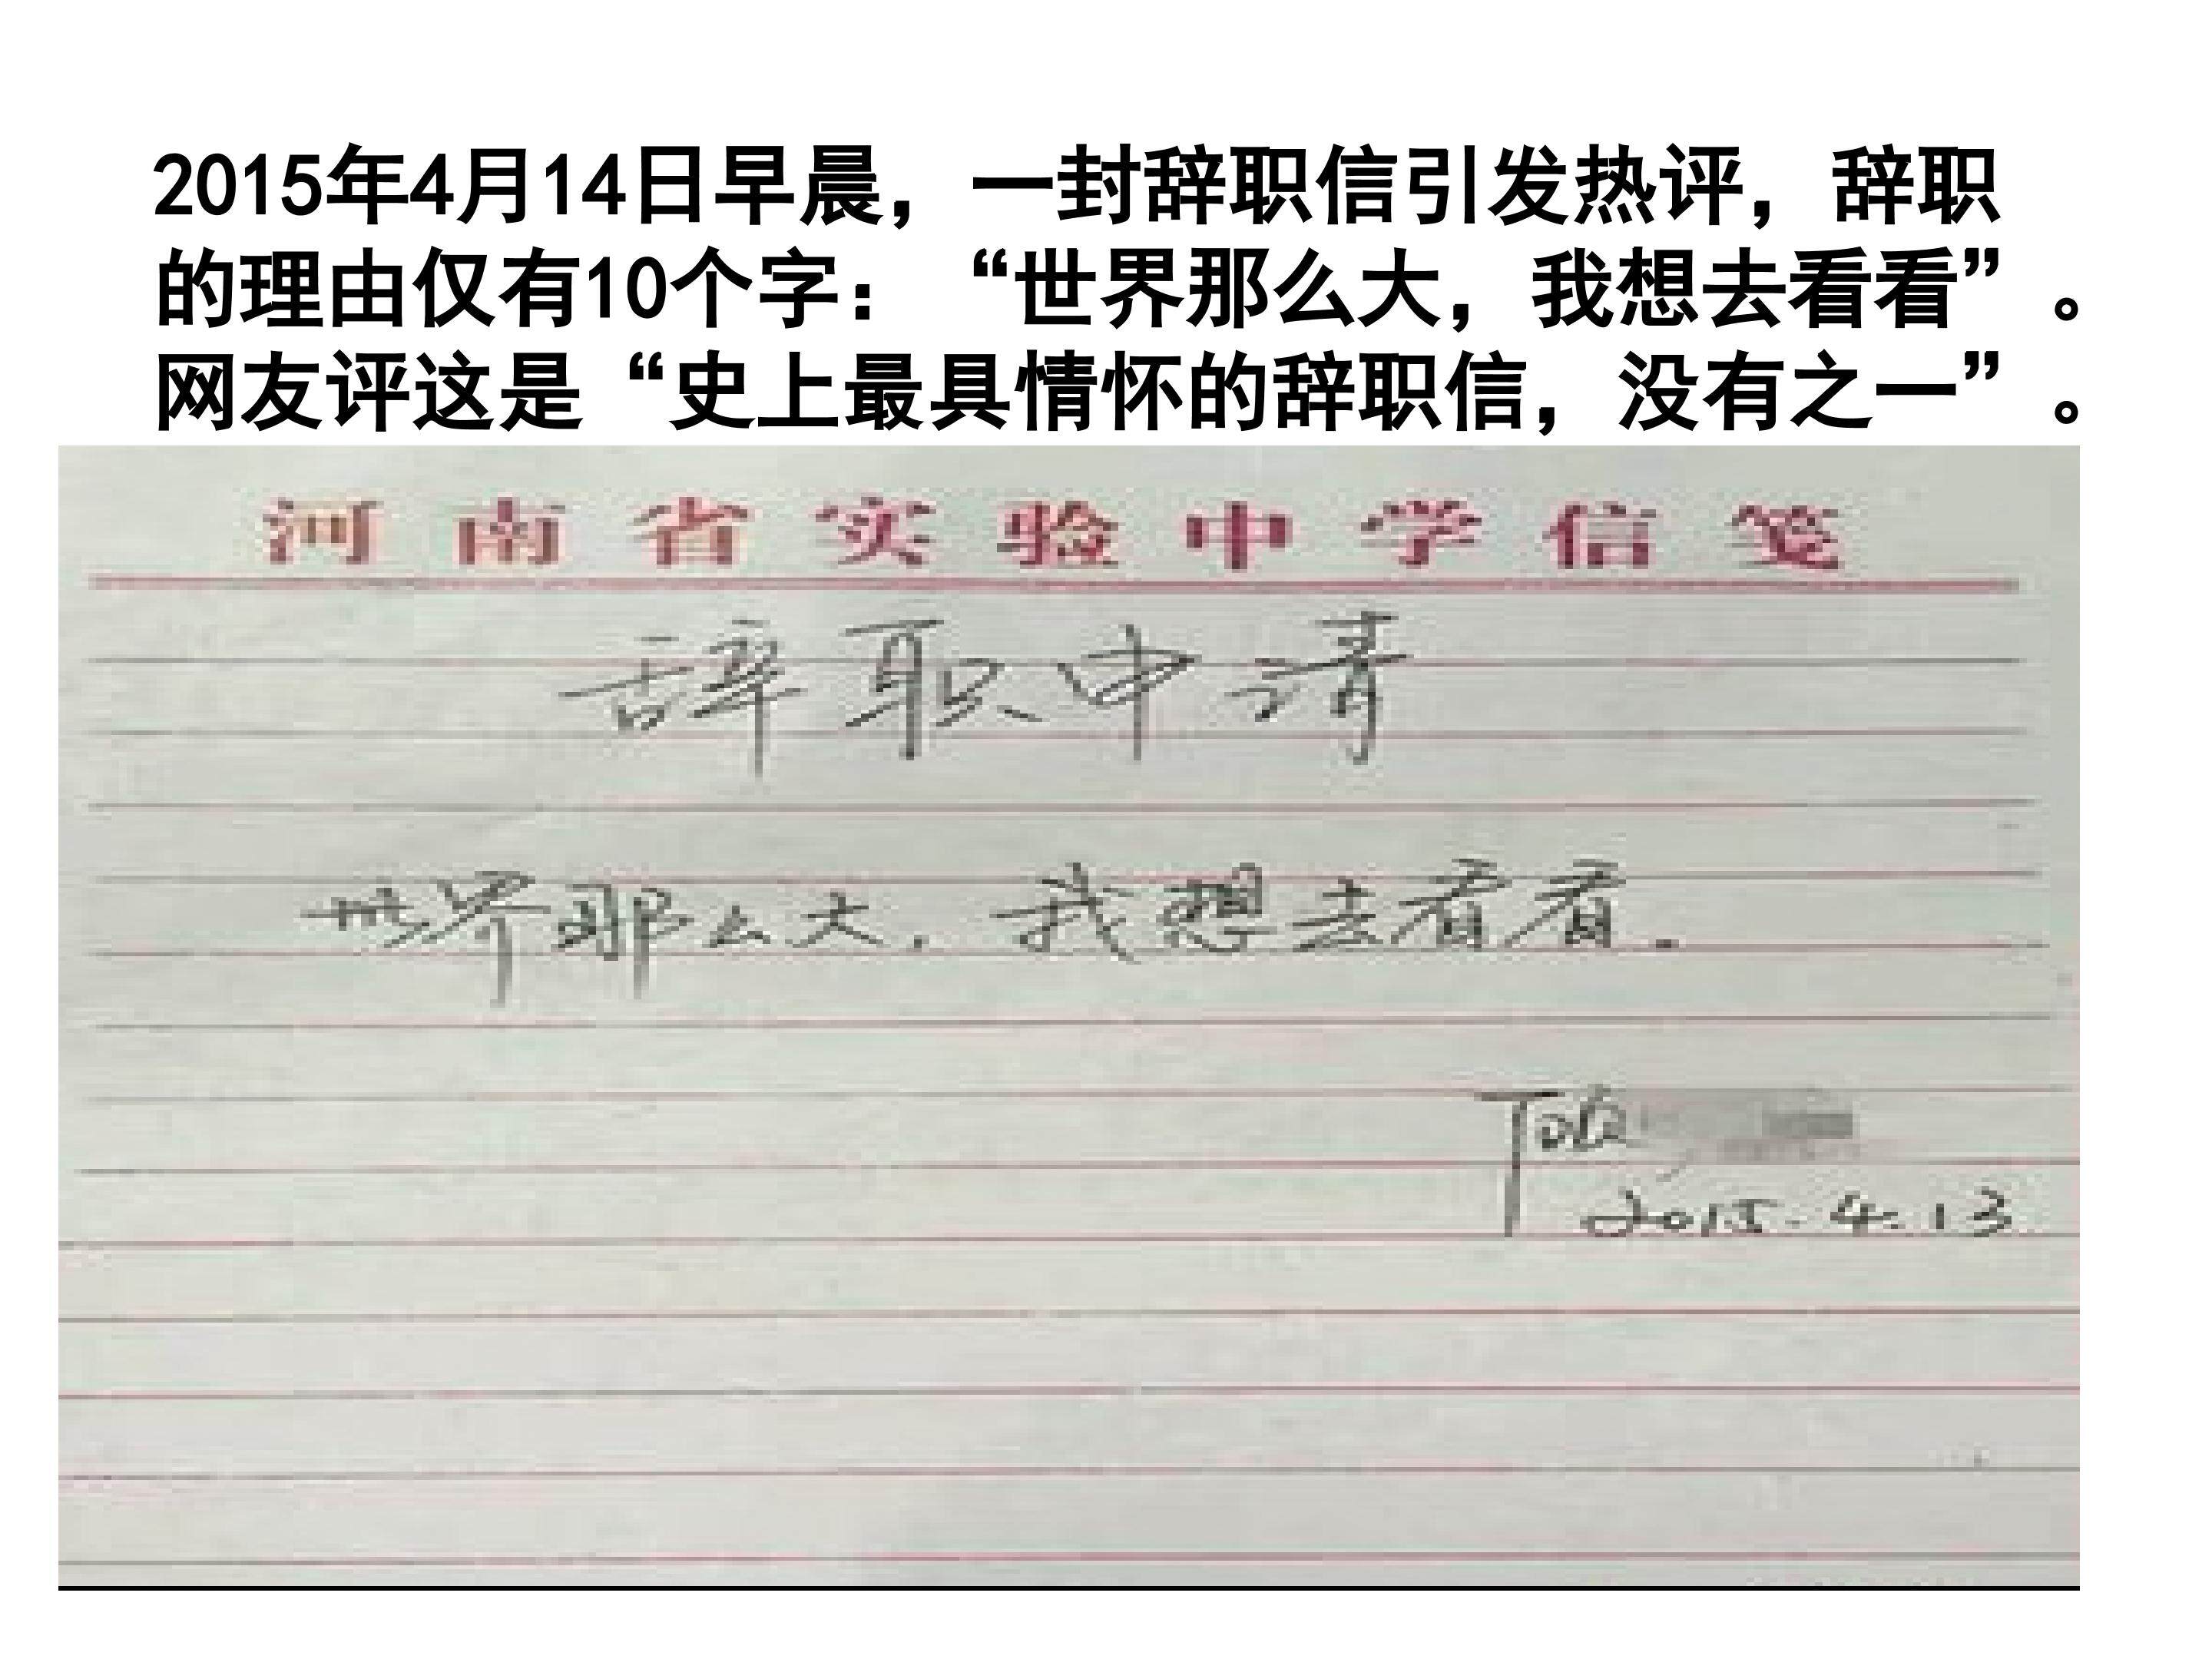 2015年4月14日早晨，一封辞职信引发热评，辞职
的理由仅有10个字：“世界那么大，我想去看看”。
网友评这是“史上最具情怀的辞职信，没有之一”。
河南省实验中学信笺
辞职申请
世界那么大，我想去看看.
顾
2015.4.13